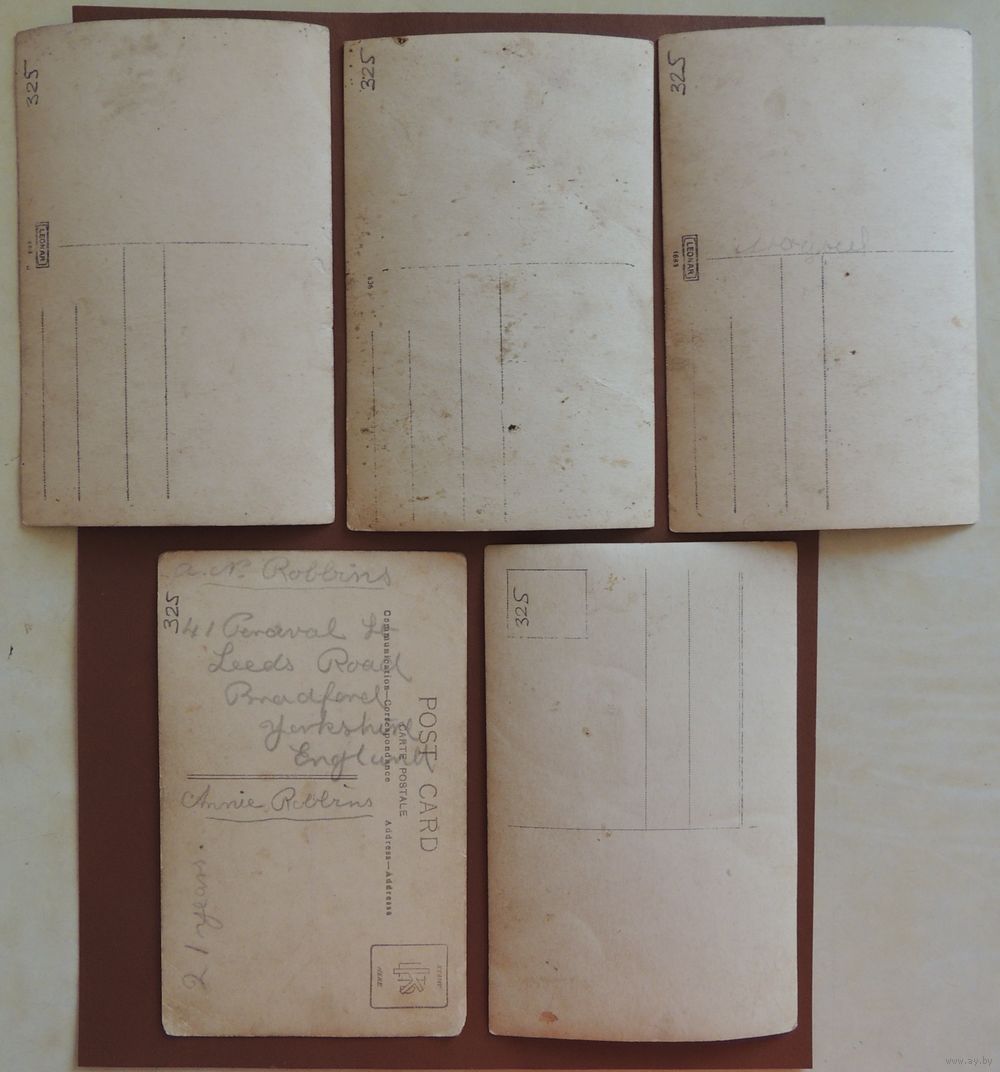 325
LEONAR
325
636
325
LEONAR
1683
325
A. N. Robbins
41 Percival St
Leeds Road
Bradford
Yorkshire
England
Annie Robbins
21 years.
POST CARD
CARTE POSTALE
Communication—Correspondance
Address—Addresse
STAMP
HERE
325
www.ay.by